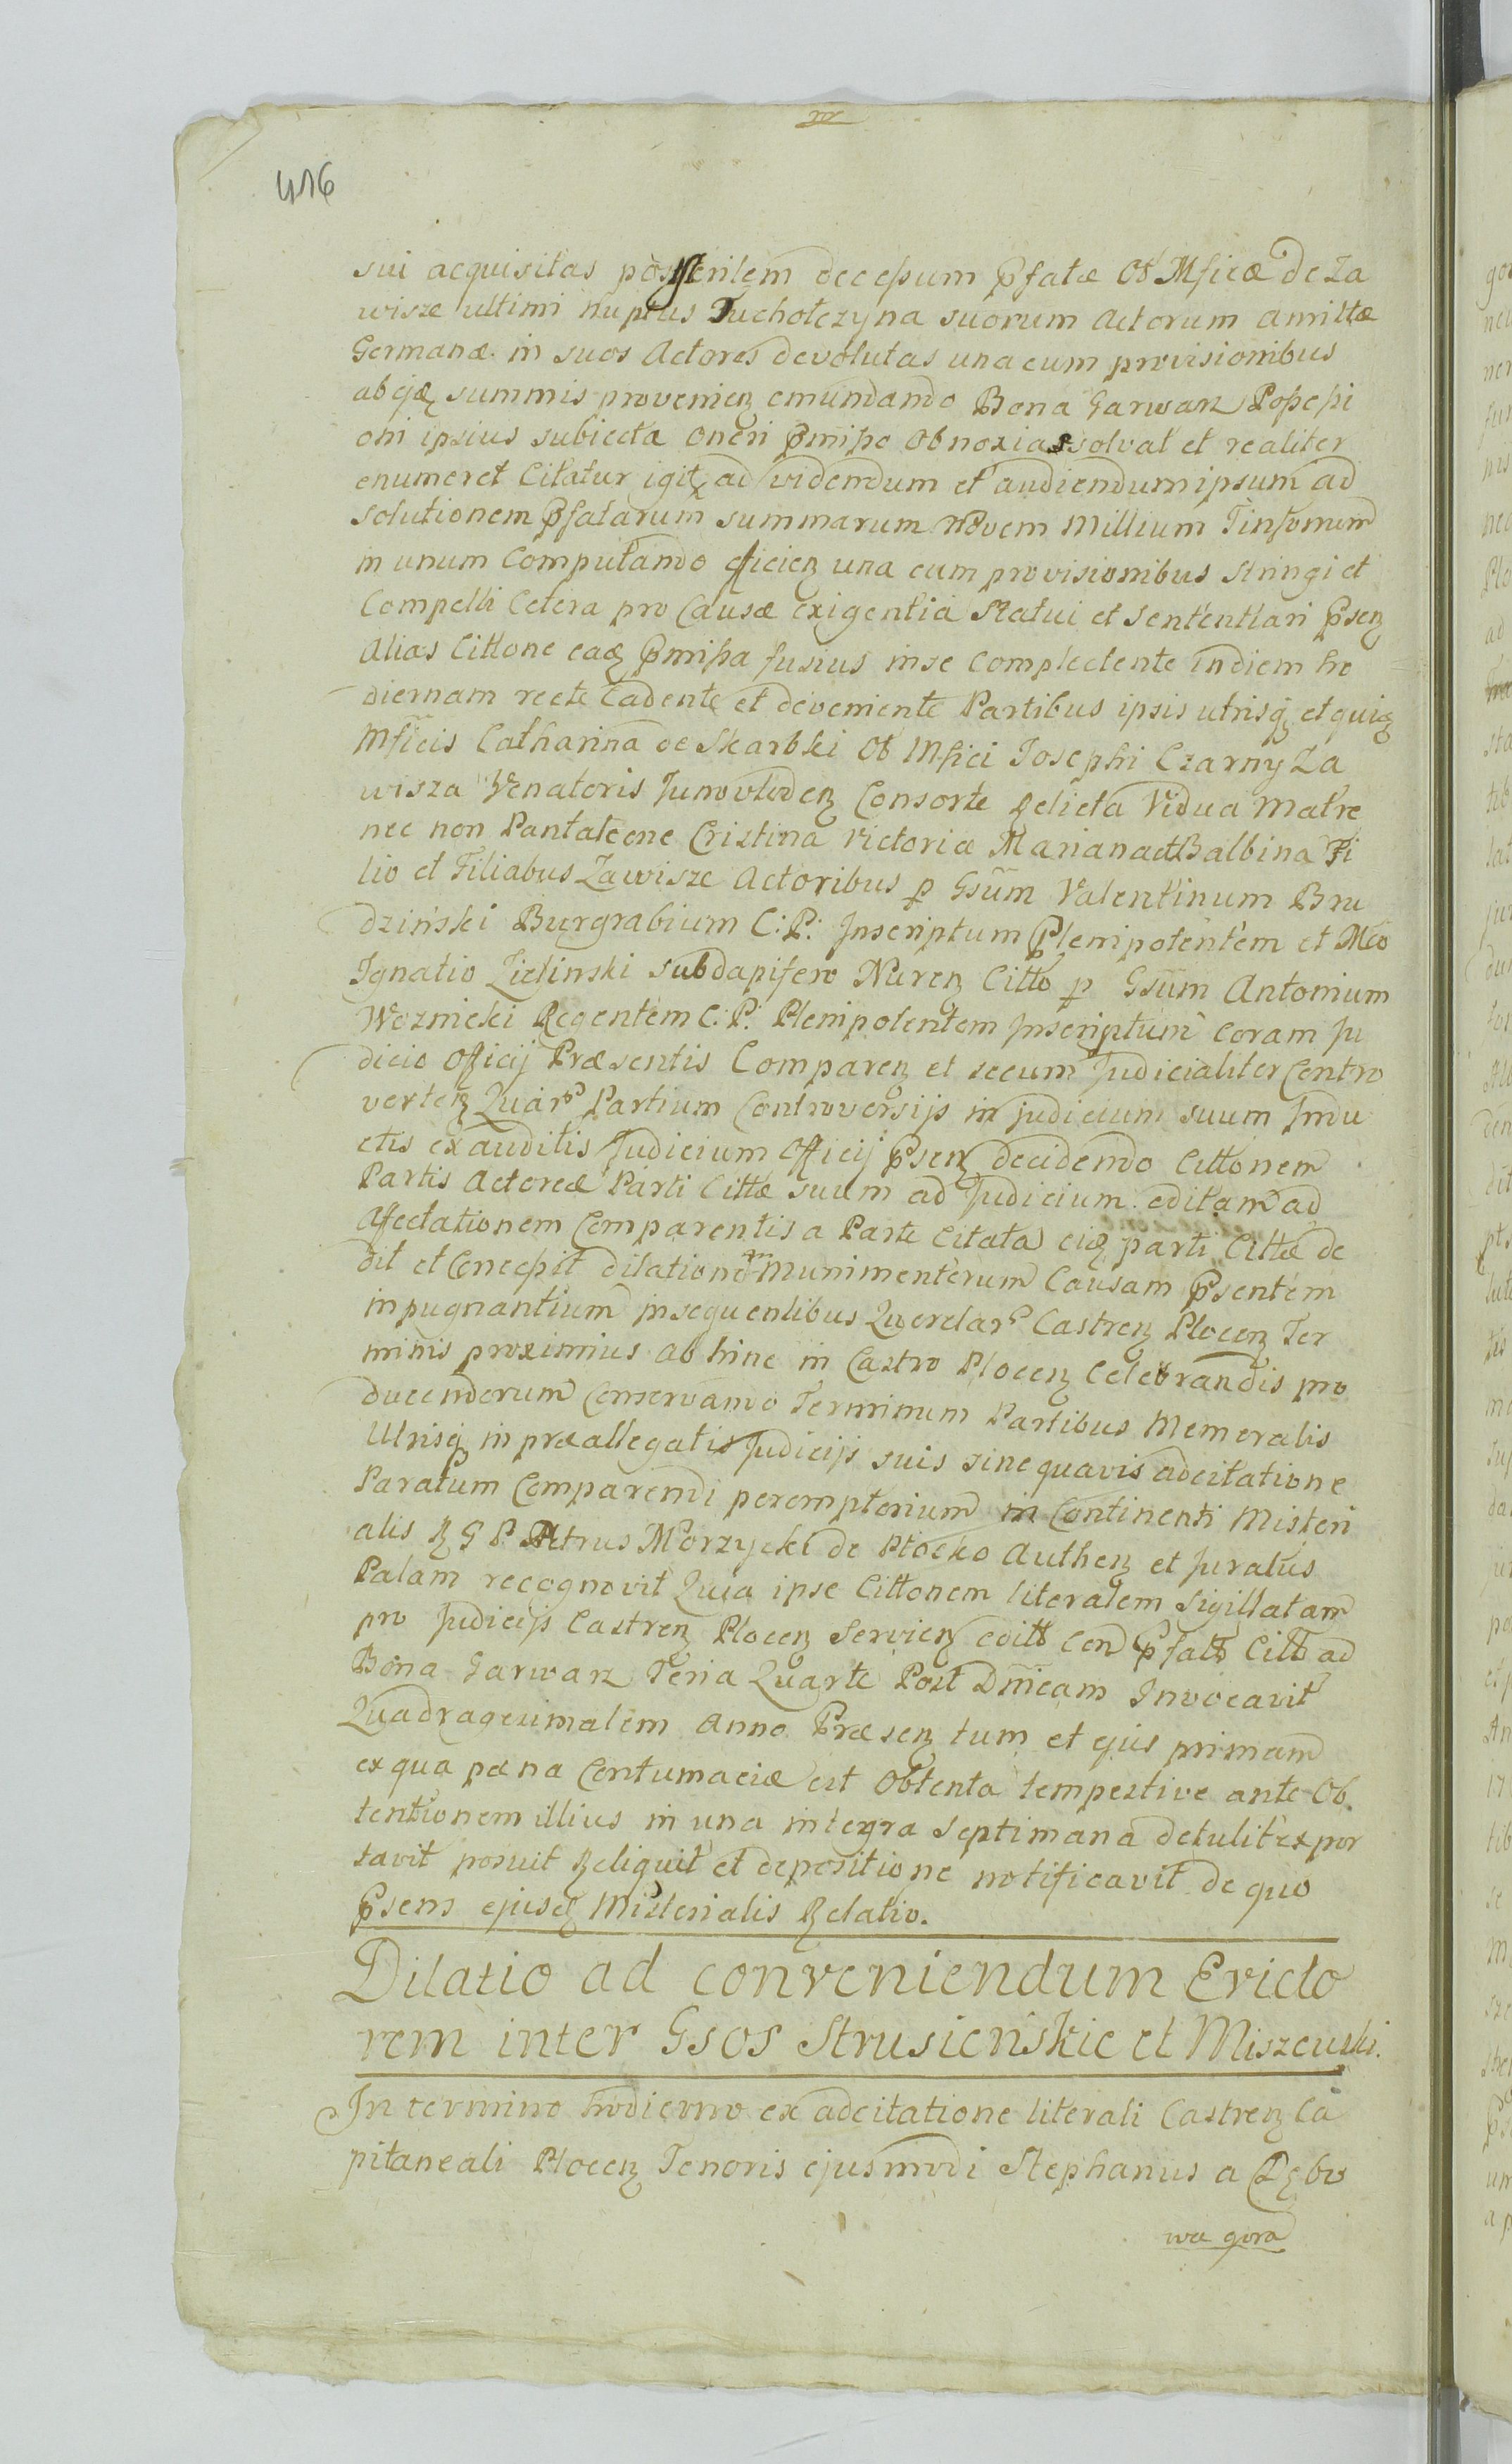 416
sui acquisitas post sterilem decessum Psfatæ Ol Mficæ de Za
wisze ultimi nuptus Tucholczyna suorum Actorum amittæ
Germanæ in suos Actores devolutas una cum provisionibus
ab ejsq summis provenienz emundando Bona Garwarz Possessi
oni ipsius subiecta oneri Pmisso Obnoxia solvat et realiter
enumeret Citatur igitz ad videndum et audiendum ipsum ad
solutionem Psfatarum summarum Novem Millium Tinfonum
in unum Computando efficienz una cum provisionibus stringi et
Compelli Cetera pro Causæ exigentia Statui et Sententiari Psenz
Alias Cittone eadz Pmissa fusius in se complectente in diem ho
diernam recte Cadente et deveniente Partibus ipsis utrisqz et quidz
Mficis Catharina de Skarbki Ol Mfici Josephi Czarny Za
wisza Venatoris Junowlodenz Consorte Relicta Vidua Matre
nec non Pantaleone Cristina Victoria Mariana et Balbina Fi
lio et Filiabus Zawisze Actoribus p Gsum Valentinum Bru
dzinski Burgrabium C: P: Inscriptum Plenipotentem et Mco
Ignatio Zielinski subdapifero Nurenz Citto p Gsum Antonium
Woznicki Regentem C: P: Plenipotentem Inscriptum coram Ju
dicio Officij Præsentis Comparenz et secum Judicialiter Contro
vertenz Quar Partium Controversijs in judicium suum Indu
ctis exauditis Judicium Officij Psenz decidendo Cittonem
Partis Actoreæ Parti Cittæ suum ad Judicium editam ad
Affectationem Comparentis a Parte Citata eidz parti Cittæ de
dit et Concessit dilationem Munimentorum Causam Psentem
inpugnantium in sequentibus Querelar Castrenz Plocenz Ter
minis proximius ab hinc in Castro Plocenz Celebrandis pro
ducendorum Conservando Terminum Partibus Memoratis
Utrisqz in præallegatis Judicijs suis sine quavis adcitatione
Paratum Comparendi peremptorium in Continenti Misteri
alis R G P. Petrus Morzycki de Plocko Authenz et Juratus
Palam recognovit Quia ipse Cittonem literalem Sigillatam
pro Judicijs Castrenz Plocenz Servienz editt Con Psfatto Citto ad
Bona Garwarz Feria Quarta Post Dnicam Invocavit
Quadragesimalem Anno Præsenz tum et ejus primam
ex qua pæna Contumaciæ est Obtenta tempestive ante Ob
tentionem illius in una integra Septimana detulit expor
tavit posuit Reliquit et depositione notificavit de quo
Psens ejusdz Misterialis Relatio.
Dilatio ad conveniendum Evicto
rem inter Gsos Strusienskie et Miszewski.
In termino hodierno ex adcitatione literali Castrenz Ca
pitaneali Plocenz Tenoris ejusmodi Stephanus a Dębo
wa gora